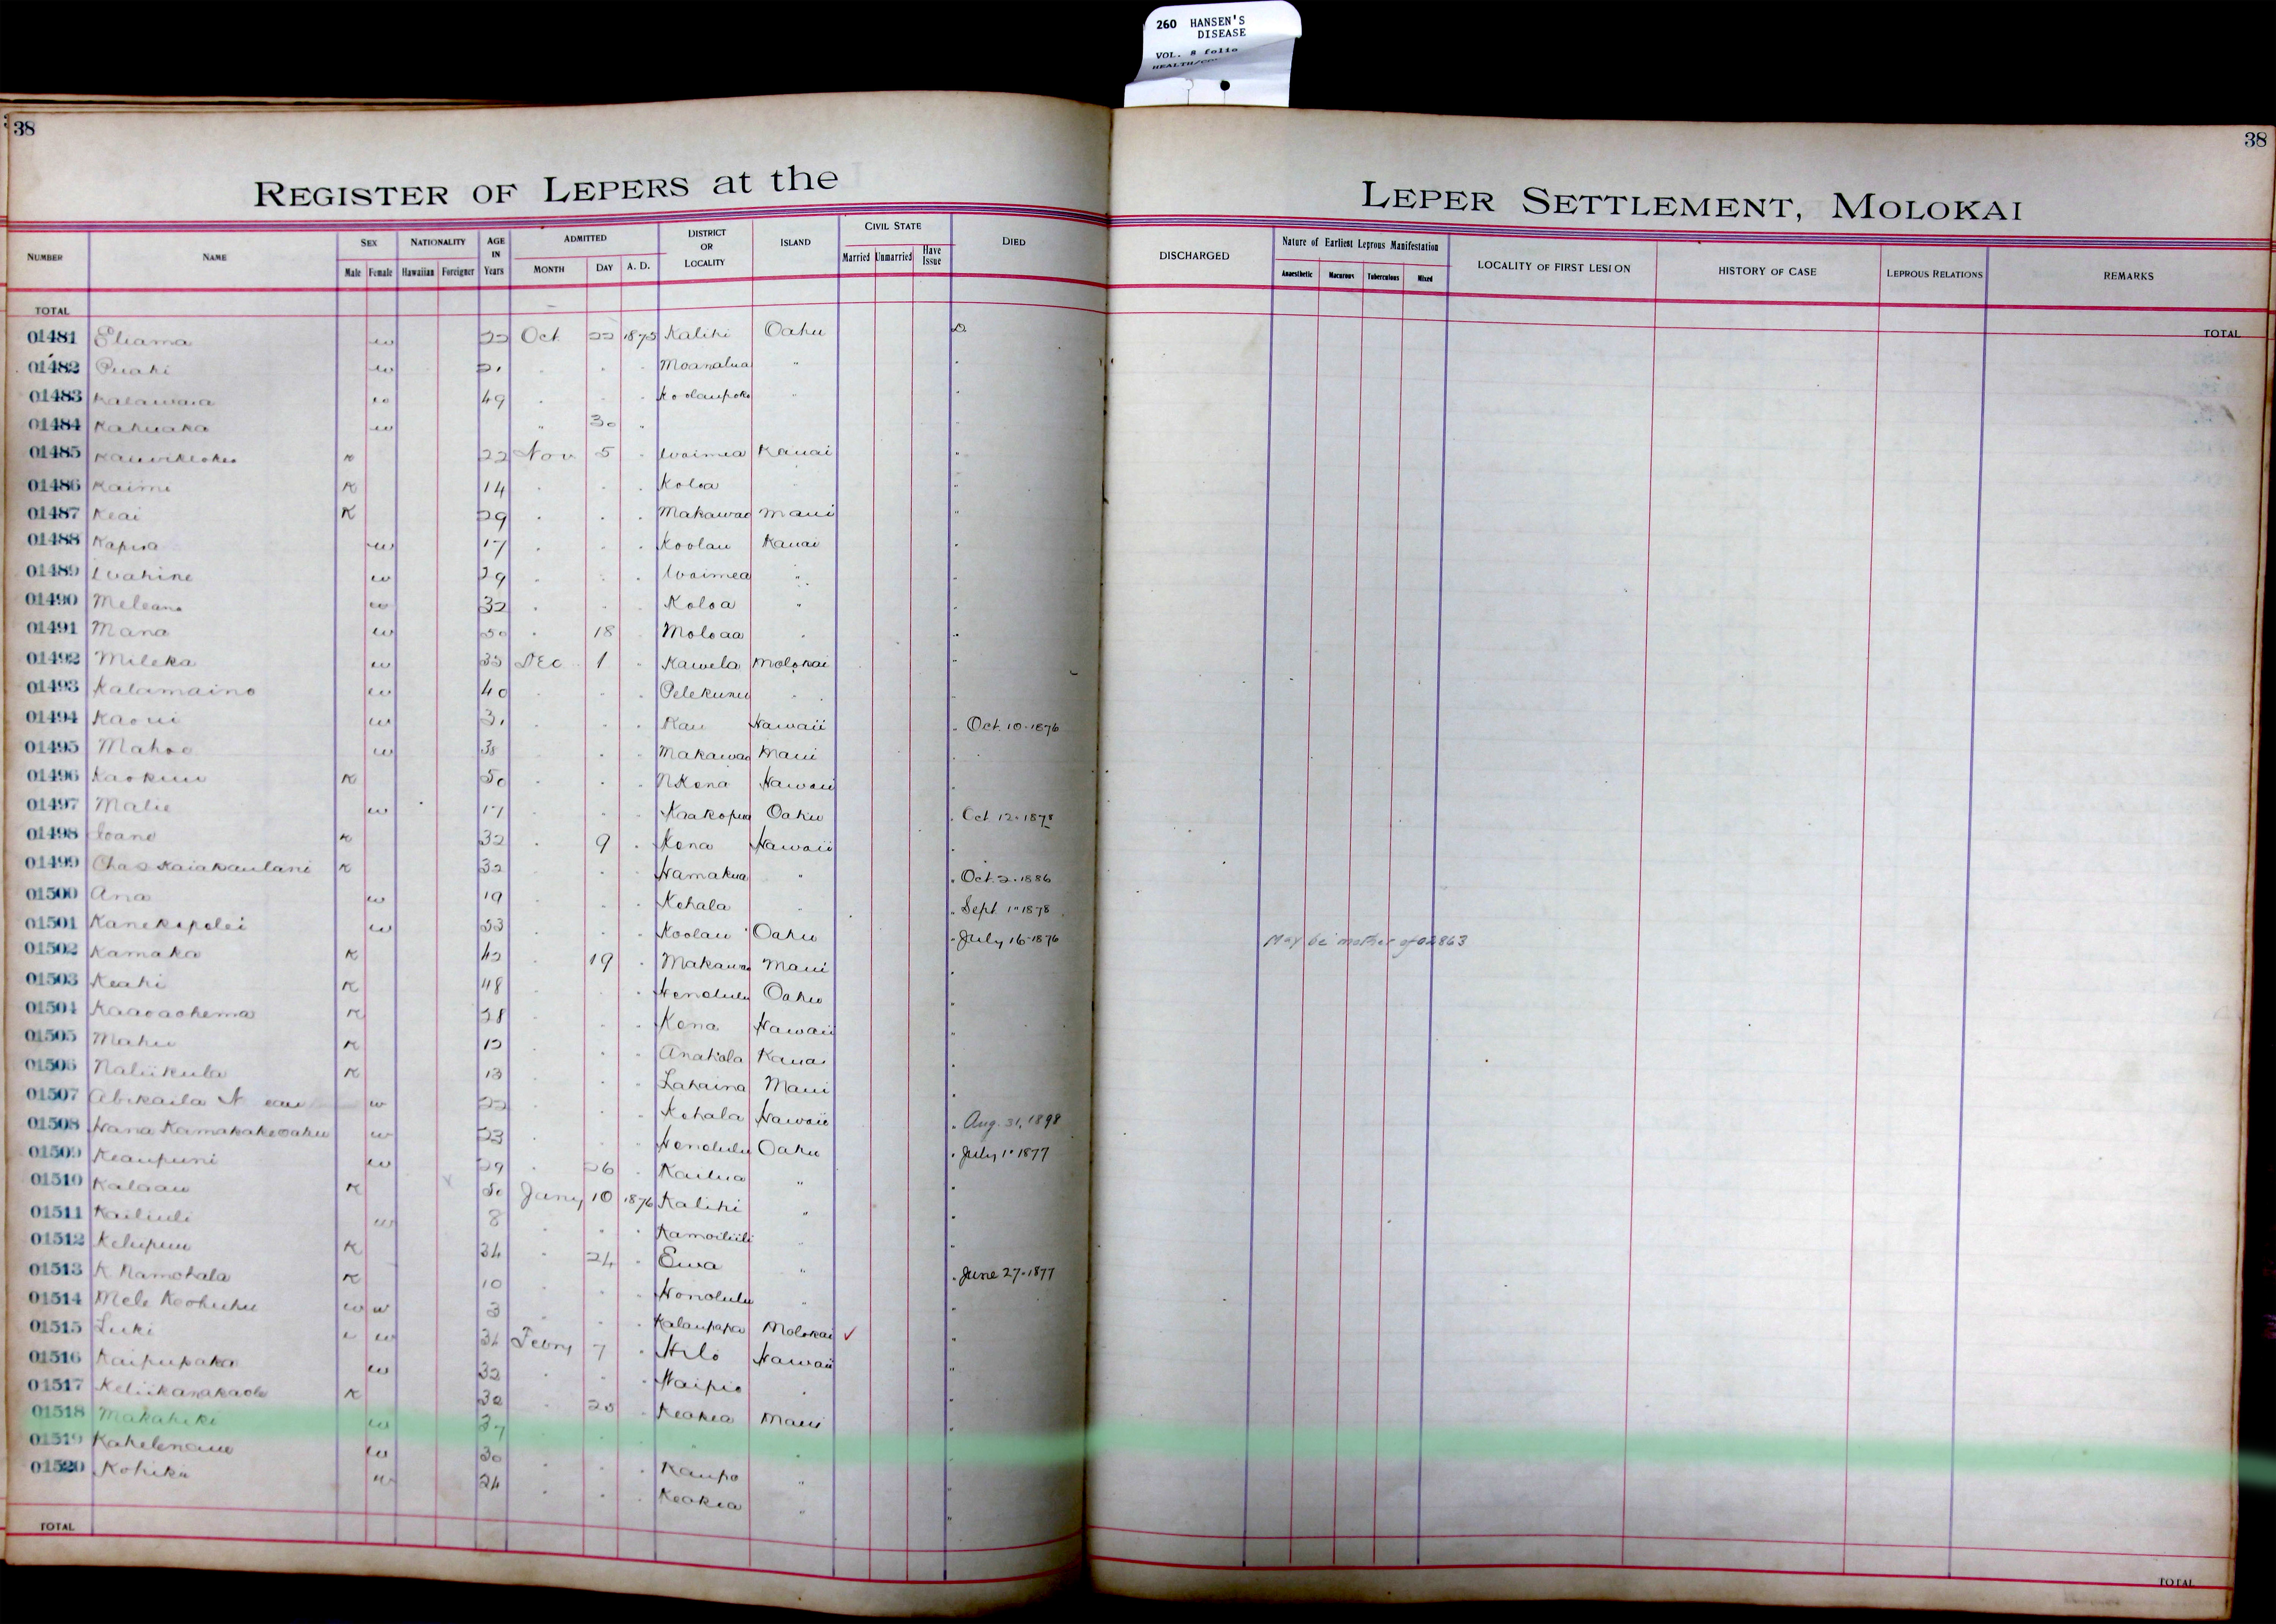 260 HANSEN'S
DISEASE
VOL. 8 folio
38
38
REGISTER OF LEPERS at the LEPER SETTLEMENT, MOLOKAI
NUMBER NAME SEX Male Female NATIONALITY Hawaiian Foreigner AGE IN Years ADMITTED MONTH DAY A. D. DISTRICT OR LOCALITY ISLAND CIVIL STATE Married Unmarried Have Issue DIED DISCHARGED Nature of Earliest Leprous Manifestation Anaesthetic Macurous Tuberculous Mixed LOCALITY OF FIRST LESION HISTORY OF CASE LEPROUS RELATIONS REMARKS
TOTAL TOTAL
01481 Eliama w 22 Oct 22 1875 Kalihi Oahu D
01482 Puahi w 21 " " " Moanalua "
01483 Kalawaia w 49 " " " Koolaupoko "
01484 Kahuaka w " 30 "
01485 K 22 Nov 5 " Waimea Kauai "
01486 Kaimi K 14 " " " Koloa "
01487 Keai K 29 " " " Makawao Maui "
01488 Kapua w 17 " " " Koolau Kauai "
01489 Wahine w 29 " " " Waimea " "
01490 Meleana w 32 " " " Koloa " "
01491 Mana w 50 " 18 Moloaa " "
01492 Mileka w 35 Dec 1 " Kawela Molokai "
01493 Kalamaino w 40 " " " Pelekunu " "
01494 Kaoui w 31 " " " Kau Hawaii " Oct. 10-1876
01495 Mahoe w 38 " " Makawao Maui "
01496 Kaokuu K 50 " " " N Kona Hawaii "
01497 Malie w 17 " " Kaakopua Oahu " Oct 12-1878
01498 Ioane K 32 " 9 " Kona Hawaii "
01499 Chas Kaiakaulani K 32 " " " Hamakua " " Oct. 2-1886
01500 Ana w 19 " " " Kohala " " Sept 1-1878
01501 Kanekapolei w 53 " " " Koolau Oahu " July 16-1876 May be mother of 02863
01502 Kamaka K 42 " 19 " Makawao Maui "
01503 Keahi K 48 " " " Honolulu Oahu "
01504 Kaaoaohema K 28 " " " Kona Hawaii "
01505 Mahu K 12 " " " Anahola Kauai "
01506 Naliikula K 13 " " " Lahaina Maui "
01507 Abikaila w 22 " " Kohala Hawaii " Aug. 31, 1898
01508 Hana Kamakakeoahu w 23 " " " Honolulu Oahu " July 1-1877
01509 Keaupuni w 29 " 26 " Kailua " "
01510 Kalaau K 50 Jany 10 1876 Kalihi " "
01511 Kailiuli w 8 " " " Kamoiliili " "
01512 Kelupuu K 34 " 24 " Ewa " " June 27-1877
01513 K Namohala K 10 " " " Honolulu " "
01514 Mele Keohuhu w w 3 " " Kalaupapa Molokai ✓ "
01515 Luki w 34 Febry 7 " Hilo Hawaii "
01516 Kaipupaka w 32 " " " Waipio " "
01517 Keliikanakaole K 30 " 25 " Keokea Maui "
01518 Makahiki w 37 " " " " " "
01519 Kahelenaue w 30 " " " Kaupo " "
01520 Kohika w 24 " " " Keokea " "
TOTAL TOTAL